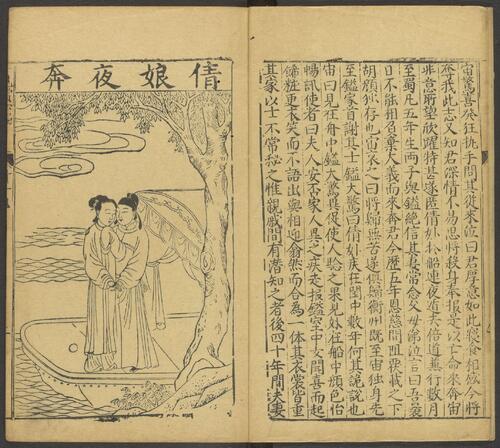 宙驚喜發狂執手問其從來泣曰君厚意如此寢食相感今將
奪我此志又知君深情不易思將殺身奉報是以亡命來奔宙
非意所望欣躍特甚遂匿倩娘於船連夜遁去倍道兼行數月
至蜀凡五年生兩子與鎰絕信其妻常念父母涕泣言曰吾曩
日不能相負棄大義而來奔君今歷五年恩慈間阻覆載之下
胡顏獨存也宙哀之曰將歸無苦遂俱歸衡州既至宙獨身先
至鎰家首謝其事鎰大驚曰倩娘疾在閨中數年何其詭說也
宙曰見在舟中鎰大驚促使人驗之果見娘在船中顏色怡
暢訊使者曰大人安否家人異之疾走報鎰室中女聞喜而起
飾粧更衣笑而不語出與相迎翕然而合為一體其衣裳皆重
其家以事不常秘之惟親戚間有潛知之者後四十年間夫妻
倩娘夜奔